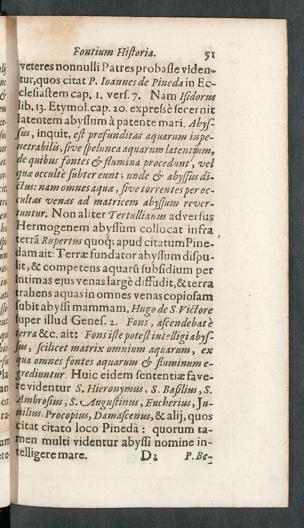 Fontium Historia. 51
veteres nonnulli Patres probasse viden-
tur, quos citat P. Ioannes de Pineda in Ec-
clesiastem cap. 1. vers. 7. Nam Isidorus
lib. 13. Etymol. cap. 20. expressè secernit
latentem abyssum à patente mari. Abyſ-
ſus, inquit, eſt profunditas aquarum impe-
netrabilis, ſive ſpelunca aquarum latentium,
de quibus fontes & flumina procedunt, vel
quæ occultè ſubter eunt; unde & abyſſus di-
ctus: nam omnes aquæ, ſive torrentes per oc-
cultas venas ad matricem abyſſum rever-
tuntur. Non aliter Tertullianus adversus
Hermogenem abyssum collocat infra
terrã Rupertus quoq; apud citatum Pine-
dam ait: Terræ fundator abyssum dispu-
lit, & competens aquarũ subsidium per
intimas ejus venas largè diffudit, & terra
trahens aquas in omnes venas copiosam
subit abyssi mammam, Hugo de S. Victore
super illud Genes. 2. Fons, aſcendebat è
terra &c. ait: Fons iſte poteſt intelligi abyſ-
ſus, ſcilicet matrix omnium aquarum, ex
qua omnes fontes aquarum & fluminum e-
grediuntur. Huic eidem sententiæ fave-
re videntur S. Hieronymus, S. Baſilius, S.
Ambroſius, S. Auguſtinus, Eucherius, Ju-
nilius. Procopius, Damaſcenus, & alij, quos
citat citato loco Pineda: quorum ta-
men multi videntur abyssi nomine in-
telligere mare. D2 P. Be-